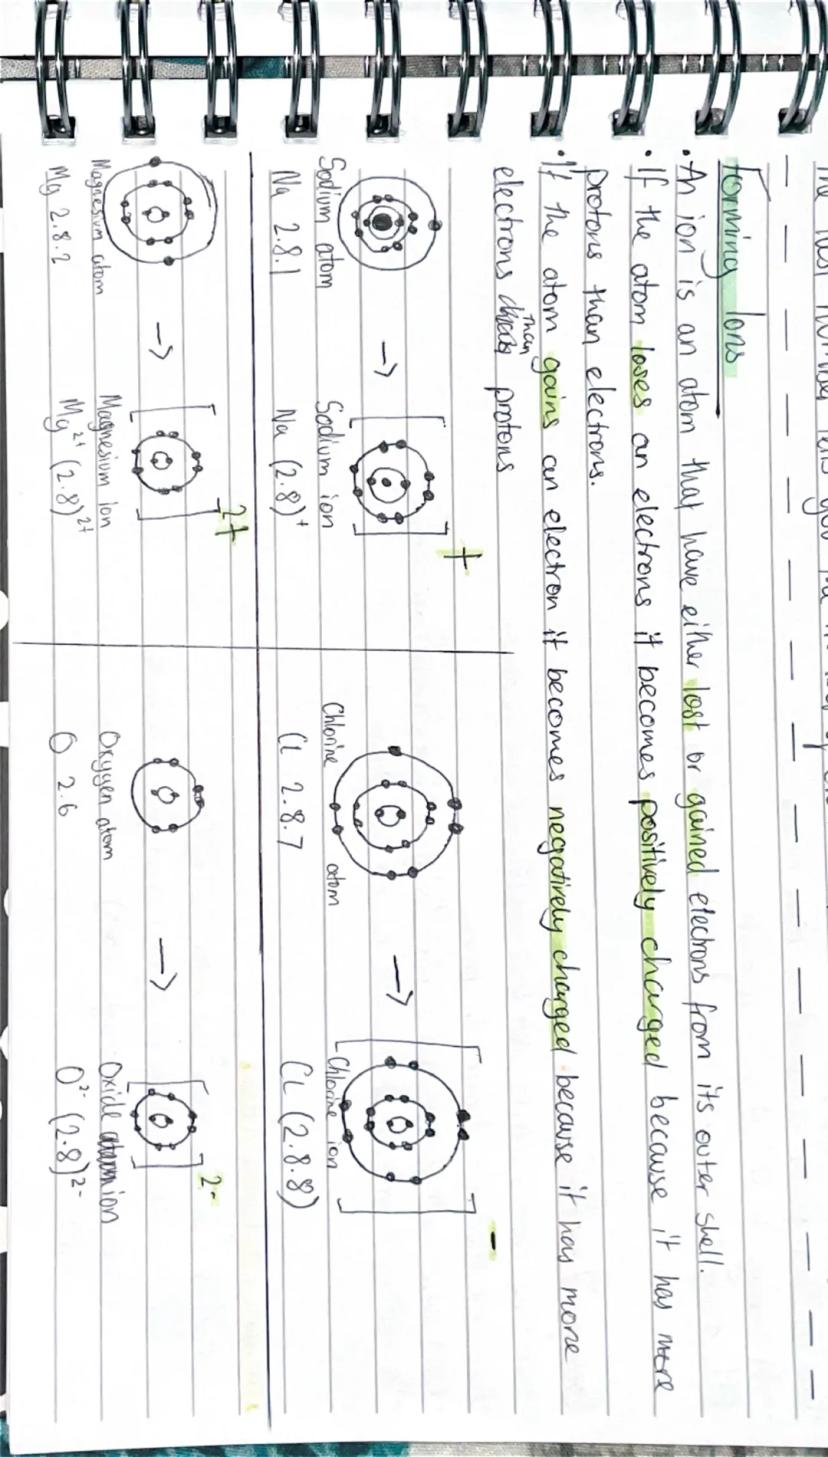 Forming Ions
• An ion is an atom that have either lost or gained electrons from its outer shell.
• If the atom loses an electrons it becomes positively charged because it has more
protons than electrons.
• If the atom gains an electron it becomes negatively charged because it has more
electrons than protons
+
-
Sodium atom → Sodium ion
Na 2.8.1 Na (2.8)⁺
Chlorine atom → Chlorine ion
Cl 2.8.7 Cl (2.8.8)
2+
2-
Magnesium atom → Magnesium ion
Mg 2.8.2 Mg²⁺ (2.8)²⁺
Oxygen atom → Oxide ion
O 2.6 O²⁻ (2.8)²⁻